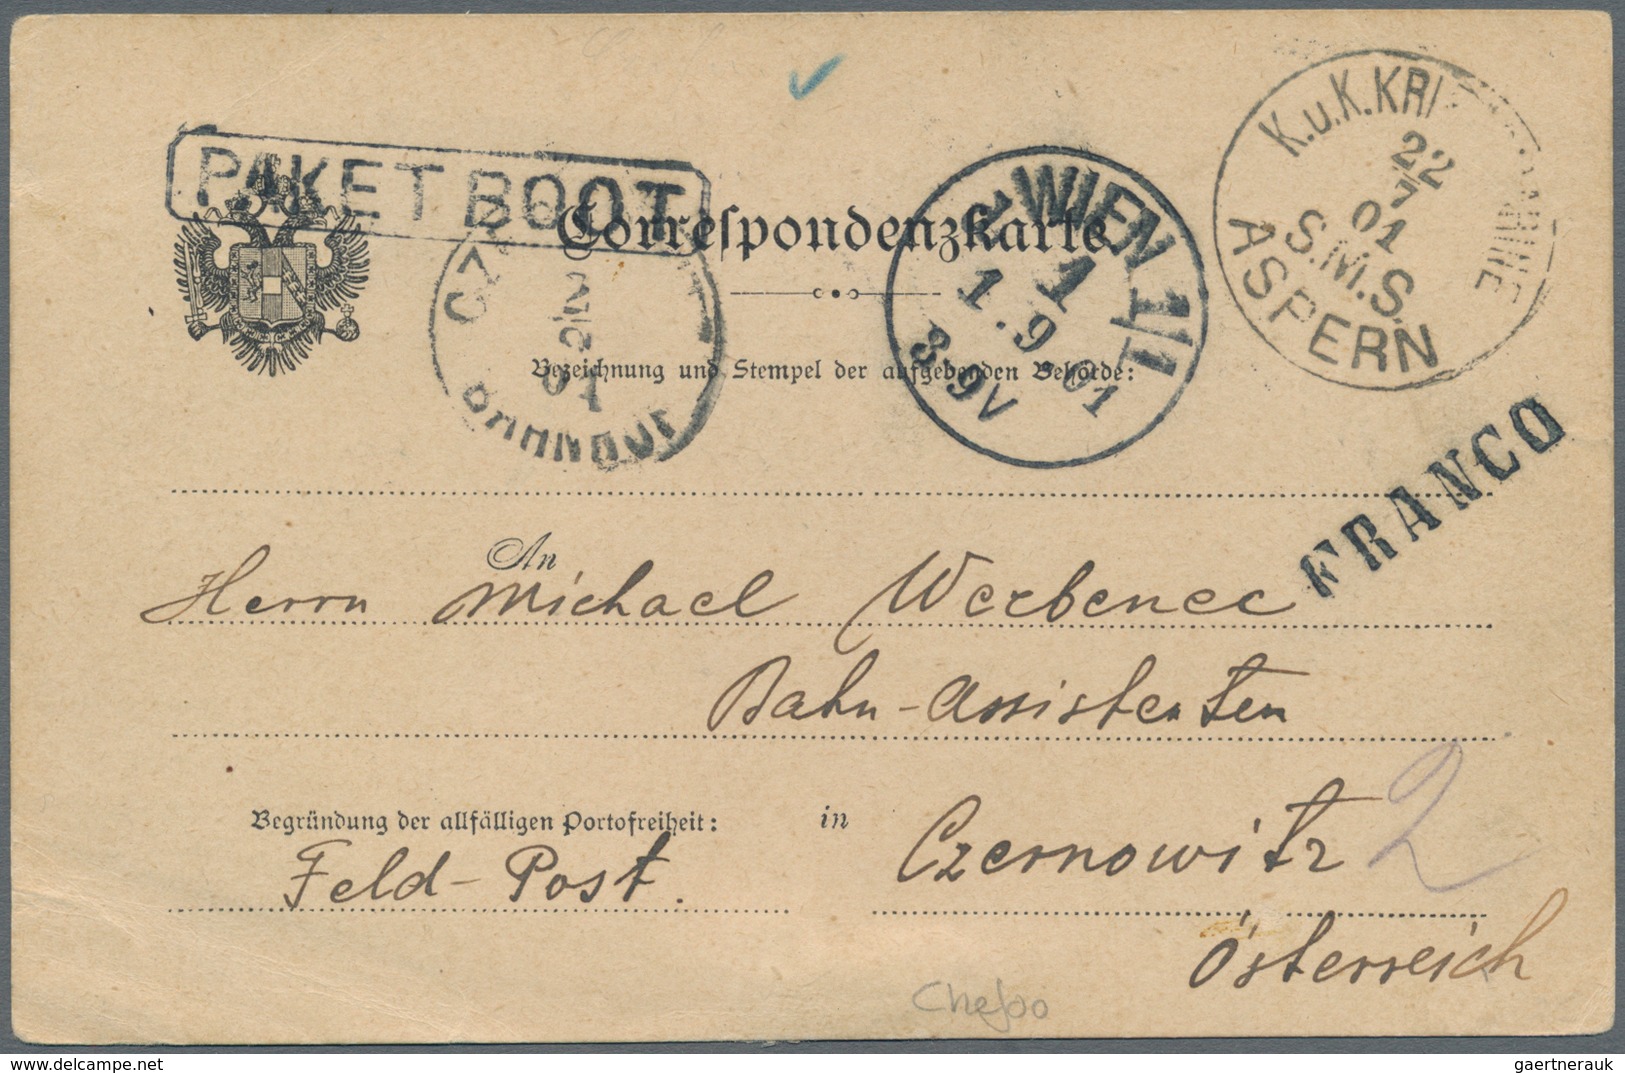 PAKETBOOT
Correspondenzkarte.
K.u.K.KRI MARINE
22
7
01
S.M.S.
ASPERN
WIEN 1/1
1
1.9.01
8-9V
CZ
2
9
01
BAHNHOF
Bezeichnung und Stempel der aufgebenden Behörde:
FRANCO
An
Herrn Michael Werbenec
Bahn-Assistenten
Begründung der allfälligen Portofreiheit:
in
Feld-Post.
Czernowitz
2
Österreich
Chefoo
delcampe.net
gaertnerauk